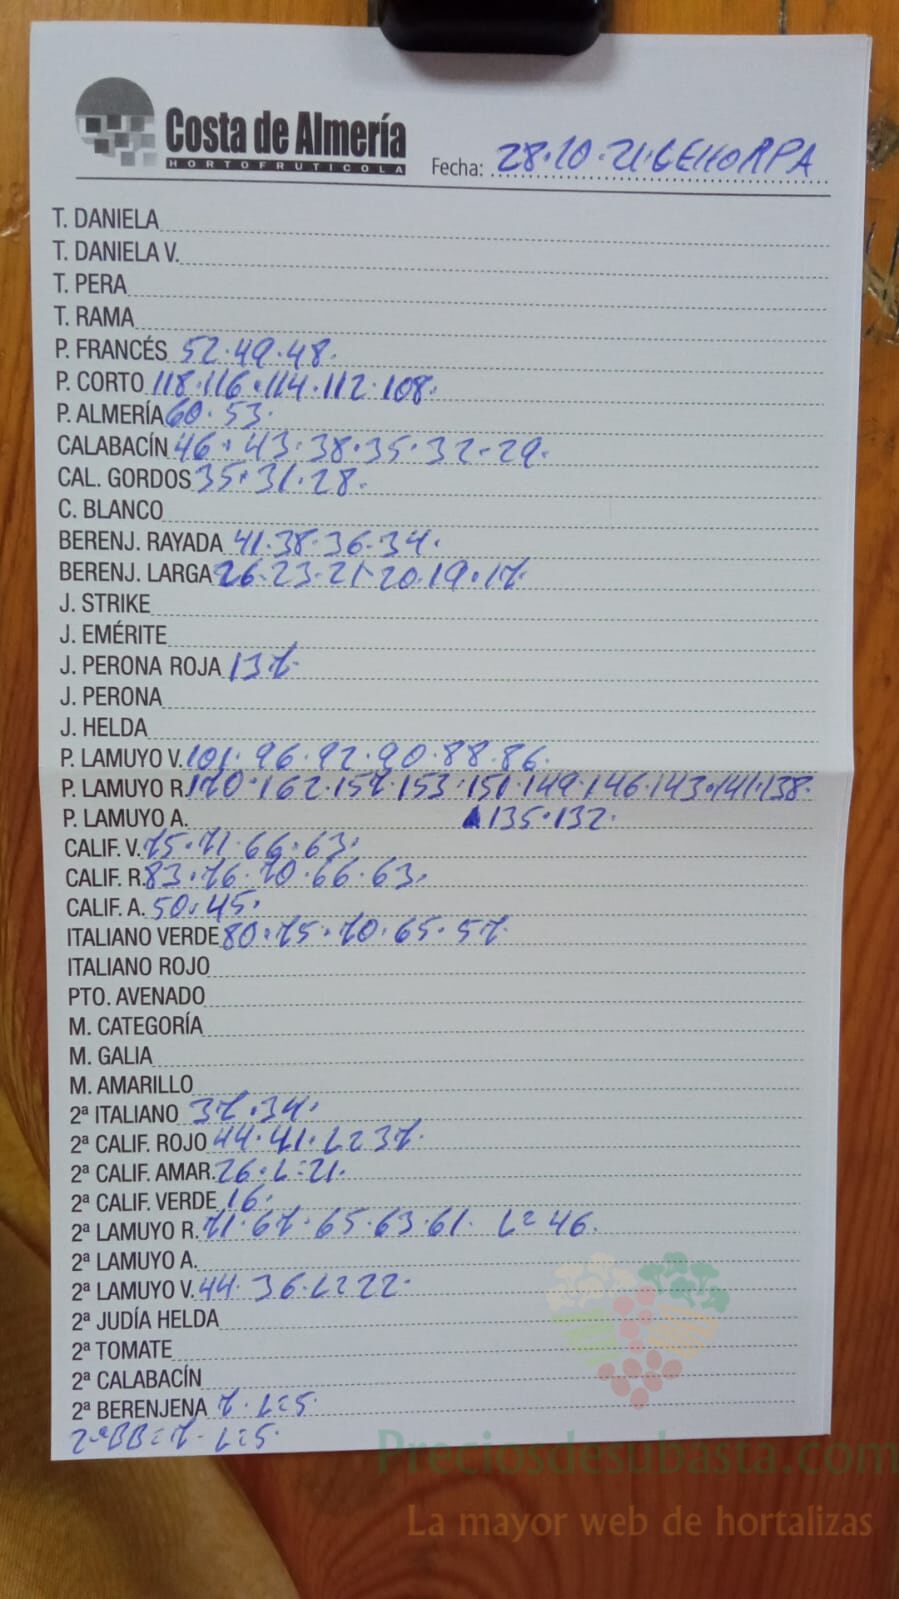 Costa de Almería
HORTOFRUTICOLA
Fecha: 28.10.21.CEHORPA
T. DANIELA
T. DANIELA V.
T. PERA
T. RAMA
P. FRANCÉS 52.49.48.
P. CORTO 118.116.114.112.108.
P. ALMERÍA 60.53.
CALABACÍN 46.43.38.35.32.29.
CAL. GORDOS 35.31.28.
C. BLANCO
BERENJ. RAYADA 41.38.36.34.
BERENJ. LARGA 26.23.21.20.19.17.
J. STRIKE
J. EMÉRITE
J. PERONA ROJA 137.
J. PERONA
J. HELDA
P. LAMUYO V. 101.96.92.90.88.86.
P. LAMUYO R. 170.162.157.153.151.149.146.143.141.138.
P. LAMUYO A. 135.132.
CALIF. V. 75.71.66.63.
CALIF. R. 83.76.70.66.63.
CALIF. A. 50.45.
ITALIANO VERDE 80.75.70.65.57.
ITALIANO ROJO
PTO. AVENADO
M. CATEGORÍA
M. GALIA
M. AMARILLO
2ª ITALIANO 37.34.
2ª CALIF. ROJO 44.41.L=37.
2ª CALIF. AMAR. 26.L=21.
2ª CALIF. VERDE 16.
2ª LAMUYO R. 71.67.65.63.61. L=46.
2ª LAMUYO A.
2ª LAMUYO V. 44.36.L=22.
2ª JUDÍA HELDA
2ª TOMATE
2ª CALABACÍN
2ª BERENJENA 7.L=5.
2ªBB=7.L=5.
Preciosdesubasta.com
La mayor web de hortalizas